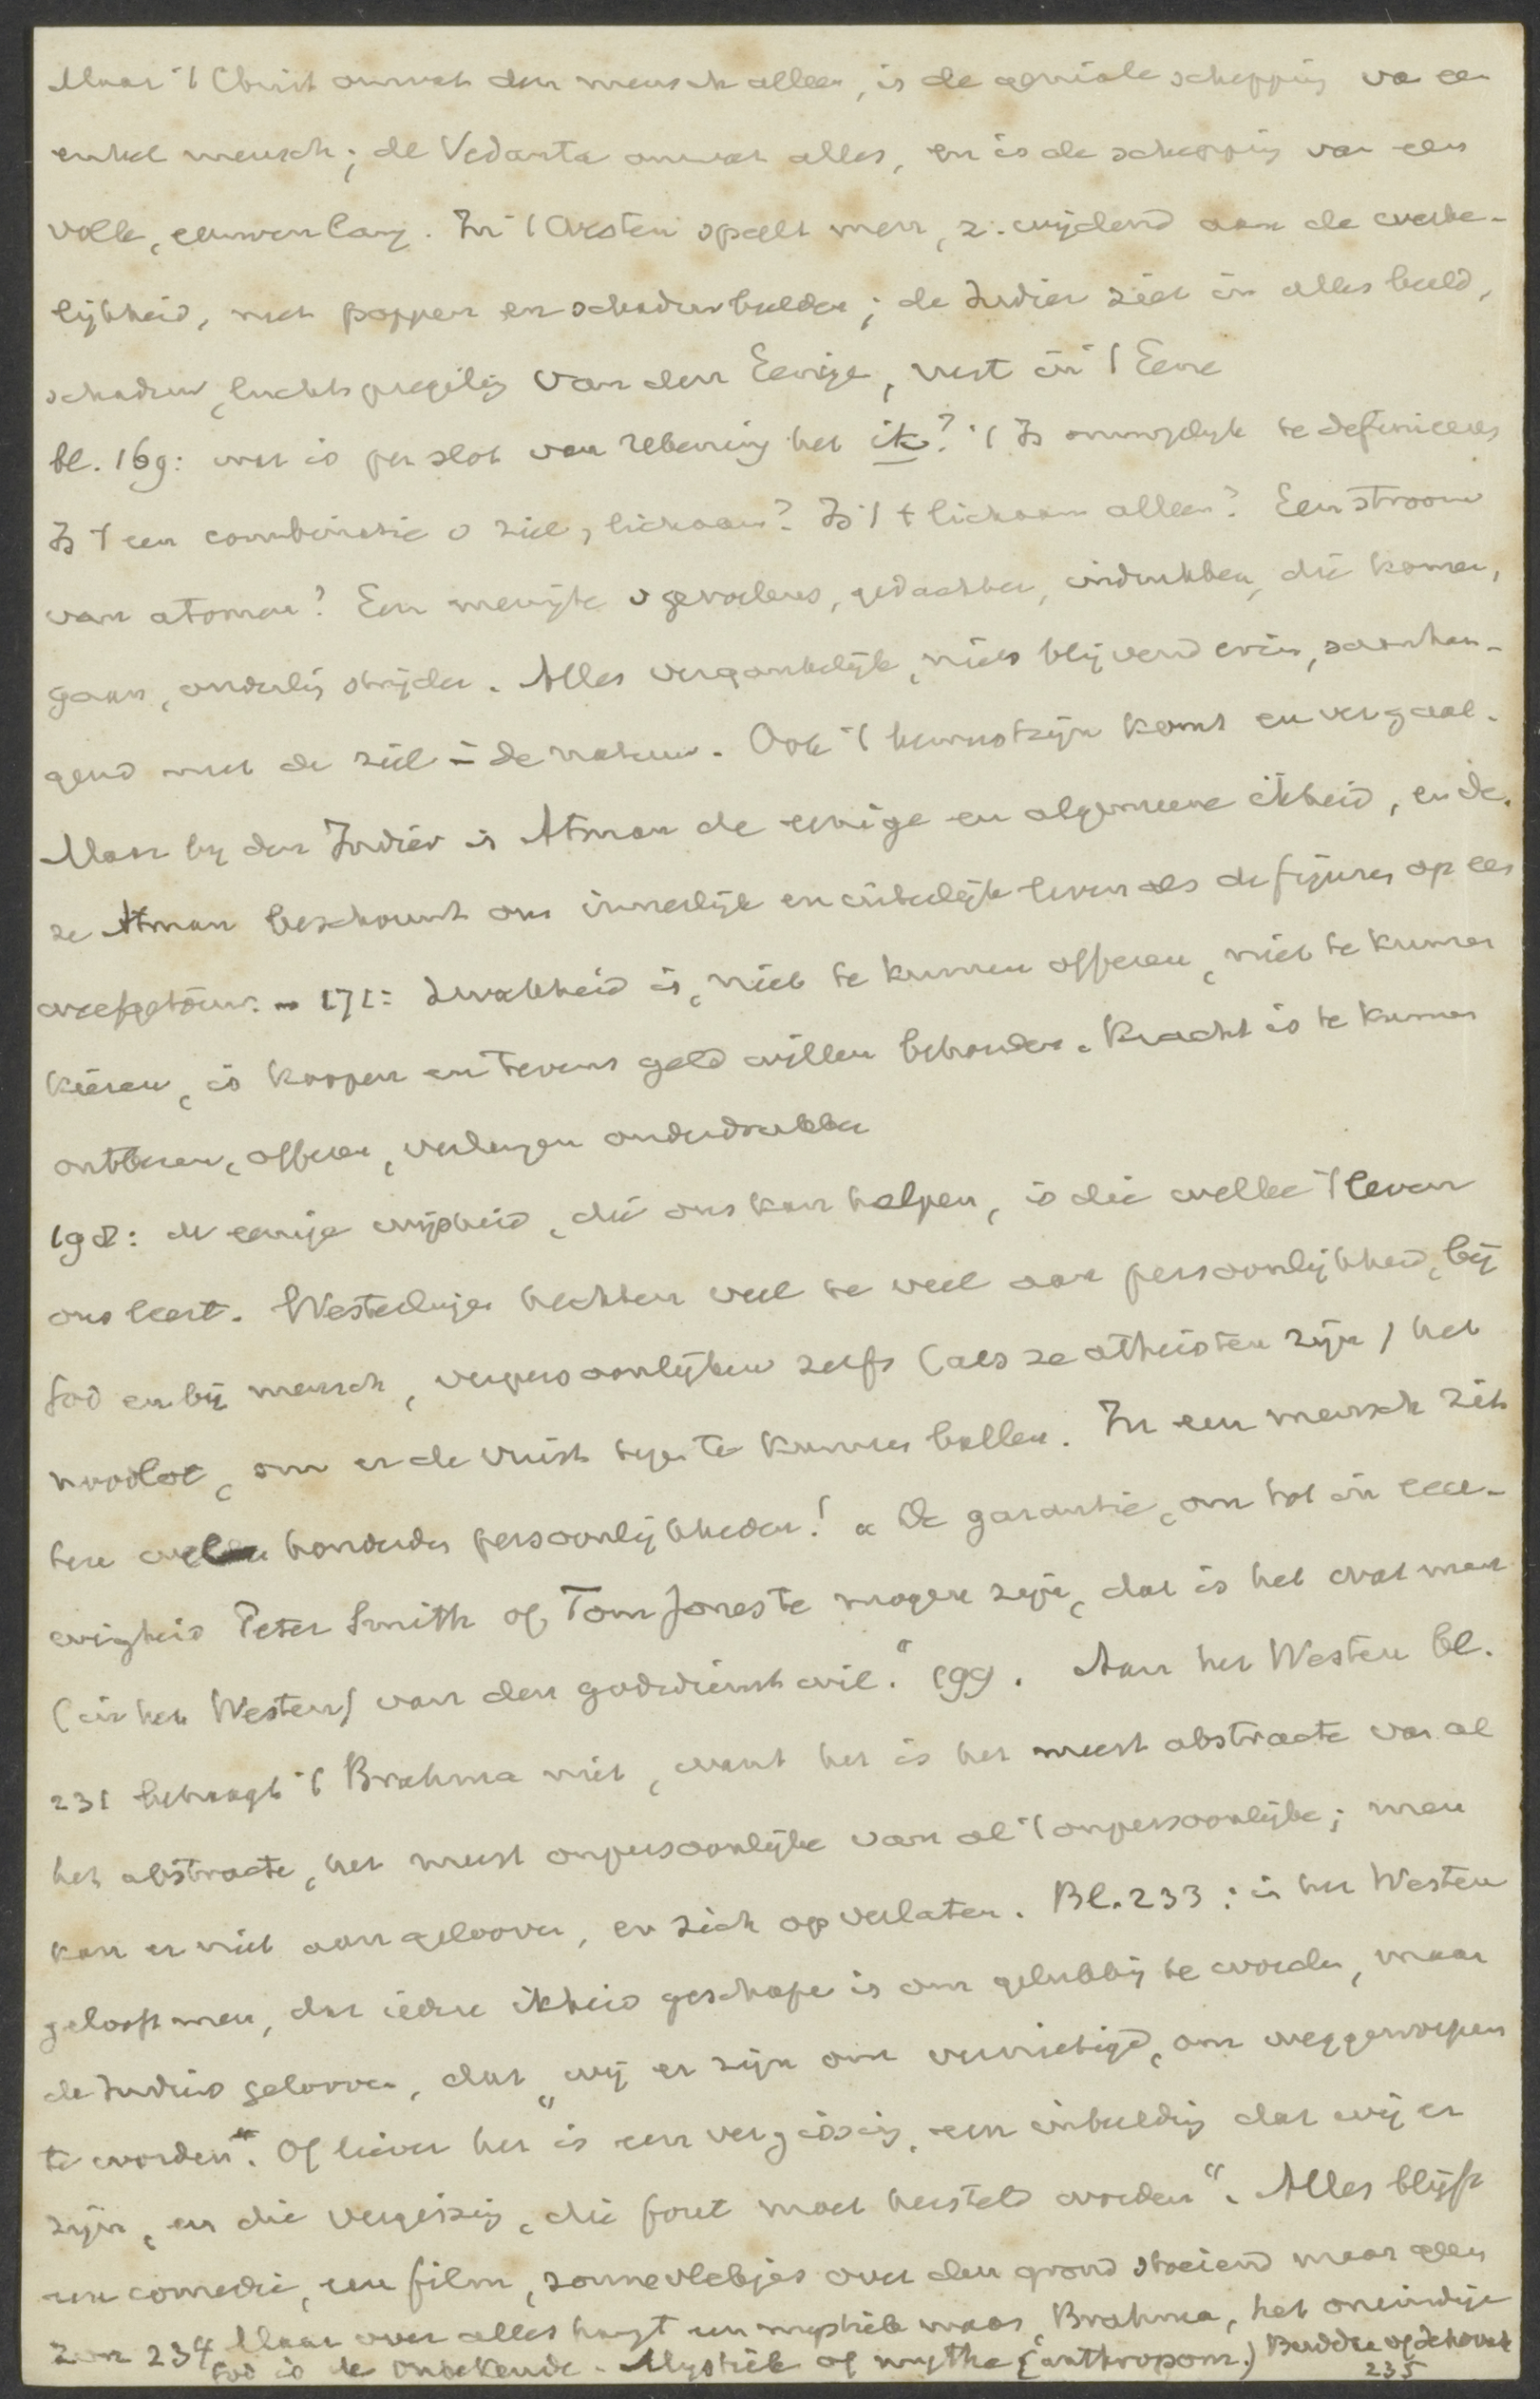 Maar 't Christ omvat den mensch alleen, is de geniale schepping va een
enkel mensch; de Vedanta omvat alles, en is de schepping van een
volk, eeuwen lang. In 't Westen speelt men, z. wijdend aan de werke-
lijkheid, met poppen en schaduwbeelden; de Indier ziet in alles beeld,
schaduw, luchtspiegeling van den Eenige, rust in 't Eene
bl. 169: wat is per slot van rekening het ik? 't Is onmogelijk te definieeren
Is 't een combinatie v ziel, lichaam? Is 't t lichaam alleen? Een stroom
van atomen? Een menigte v gevoelens, gedachten, indrukken, die komen,
gaan, onderling strijden. Alles vergankelijk, niets blijvend erin, samenhan-
gend met de ziel = de natuur. Ook 't bewustzijn komt en vergaat.
Maar bij den Indiër is Atman de eenige en algemeene ikheid, en de-
ze Atman beschouwt ons innerlijk en uiterlijk leven als de figuren op een
weefgetouw. – 171: Zwakheid is, niet te kunnen offeren, niet te kunnen
kiezen, is koopen en tevens geld willen behouden. Kracht is te kunnen
ontberen, offeren, verlangen onderdrukken
198: de eenige wijsheid, die ons kan helpen, is die welke 't leven
ons leert. Westerlingen hechten veel te veel aan persoonlijkheid, bij
God en bij mensch, verpersoonlijken zelfs (als ze atheisten zijn) het
noodlot, om er de vuist tegen te kunnen ballen. In een mensch zit-
ten wel honderden persoonlijkheden! „De garantie, om tot in eeu-
wigheid Peter Smith of Tom Jones te mogen zijn, dat is het wat men
(in het Westen) van den godsdienst wil." 199. Aan het Westen bl.
231 behaagt 't Brahma niet, want het is het meest abstracte van al
het abstracte, het meest onpersoonlijke van al 't onpersoonlijke; men
kan er niet aan gelooven, en zich op verlaten. Bl. 233: in het Westen
gelooft men, dat iedere ikheid geschape is om gelukkig te worden, maar
de Indiers gelooven, dat „wij er zijn om vernietigd, om weggeworpen
te worden". Of liever het is een vergissing, een inbeelding dat wij er
zijn, en die vergissing, die fout moet hersteld worden". Alles blijft
een comedie, een film, zonnevlekjes over den grond stoeiend maar geen
zon 234 Maar over alles hangt een mystiek waas, Brahma, het oneindige
God is de onbekende. Mystiek of mythe (anthropom.) Buddha of Jehovah
235